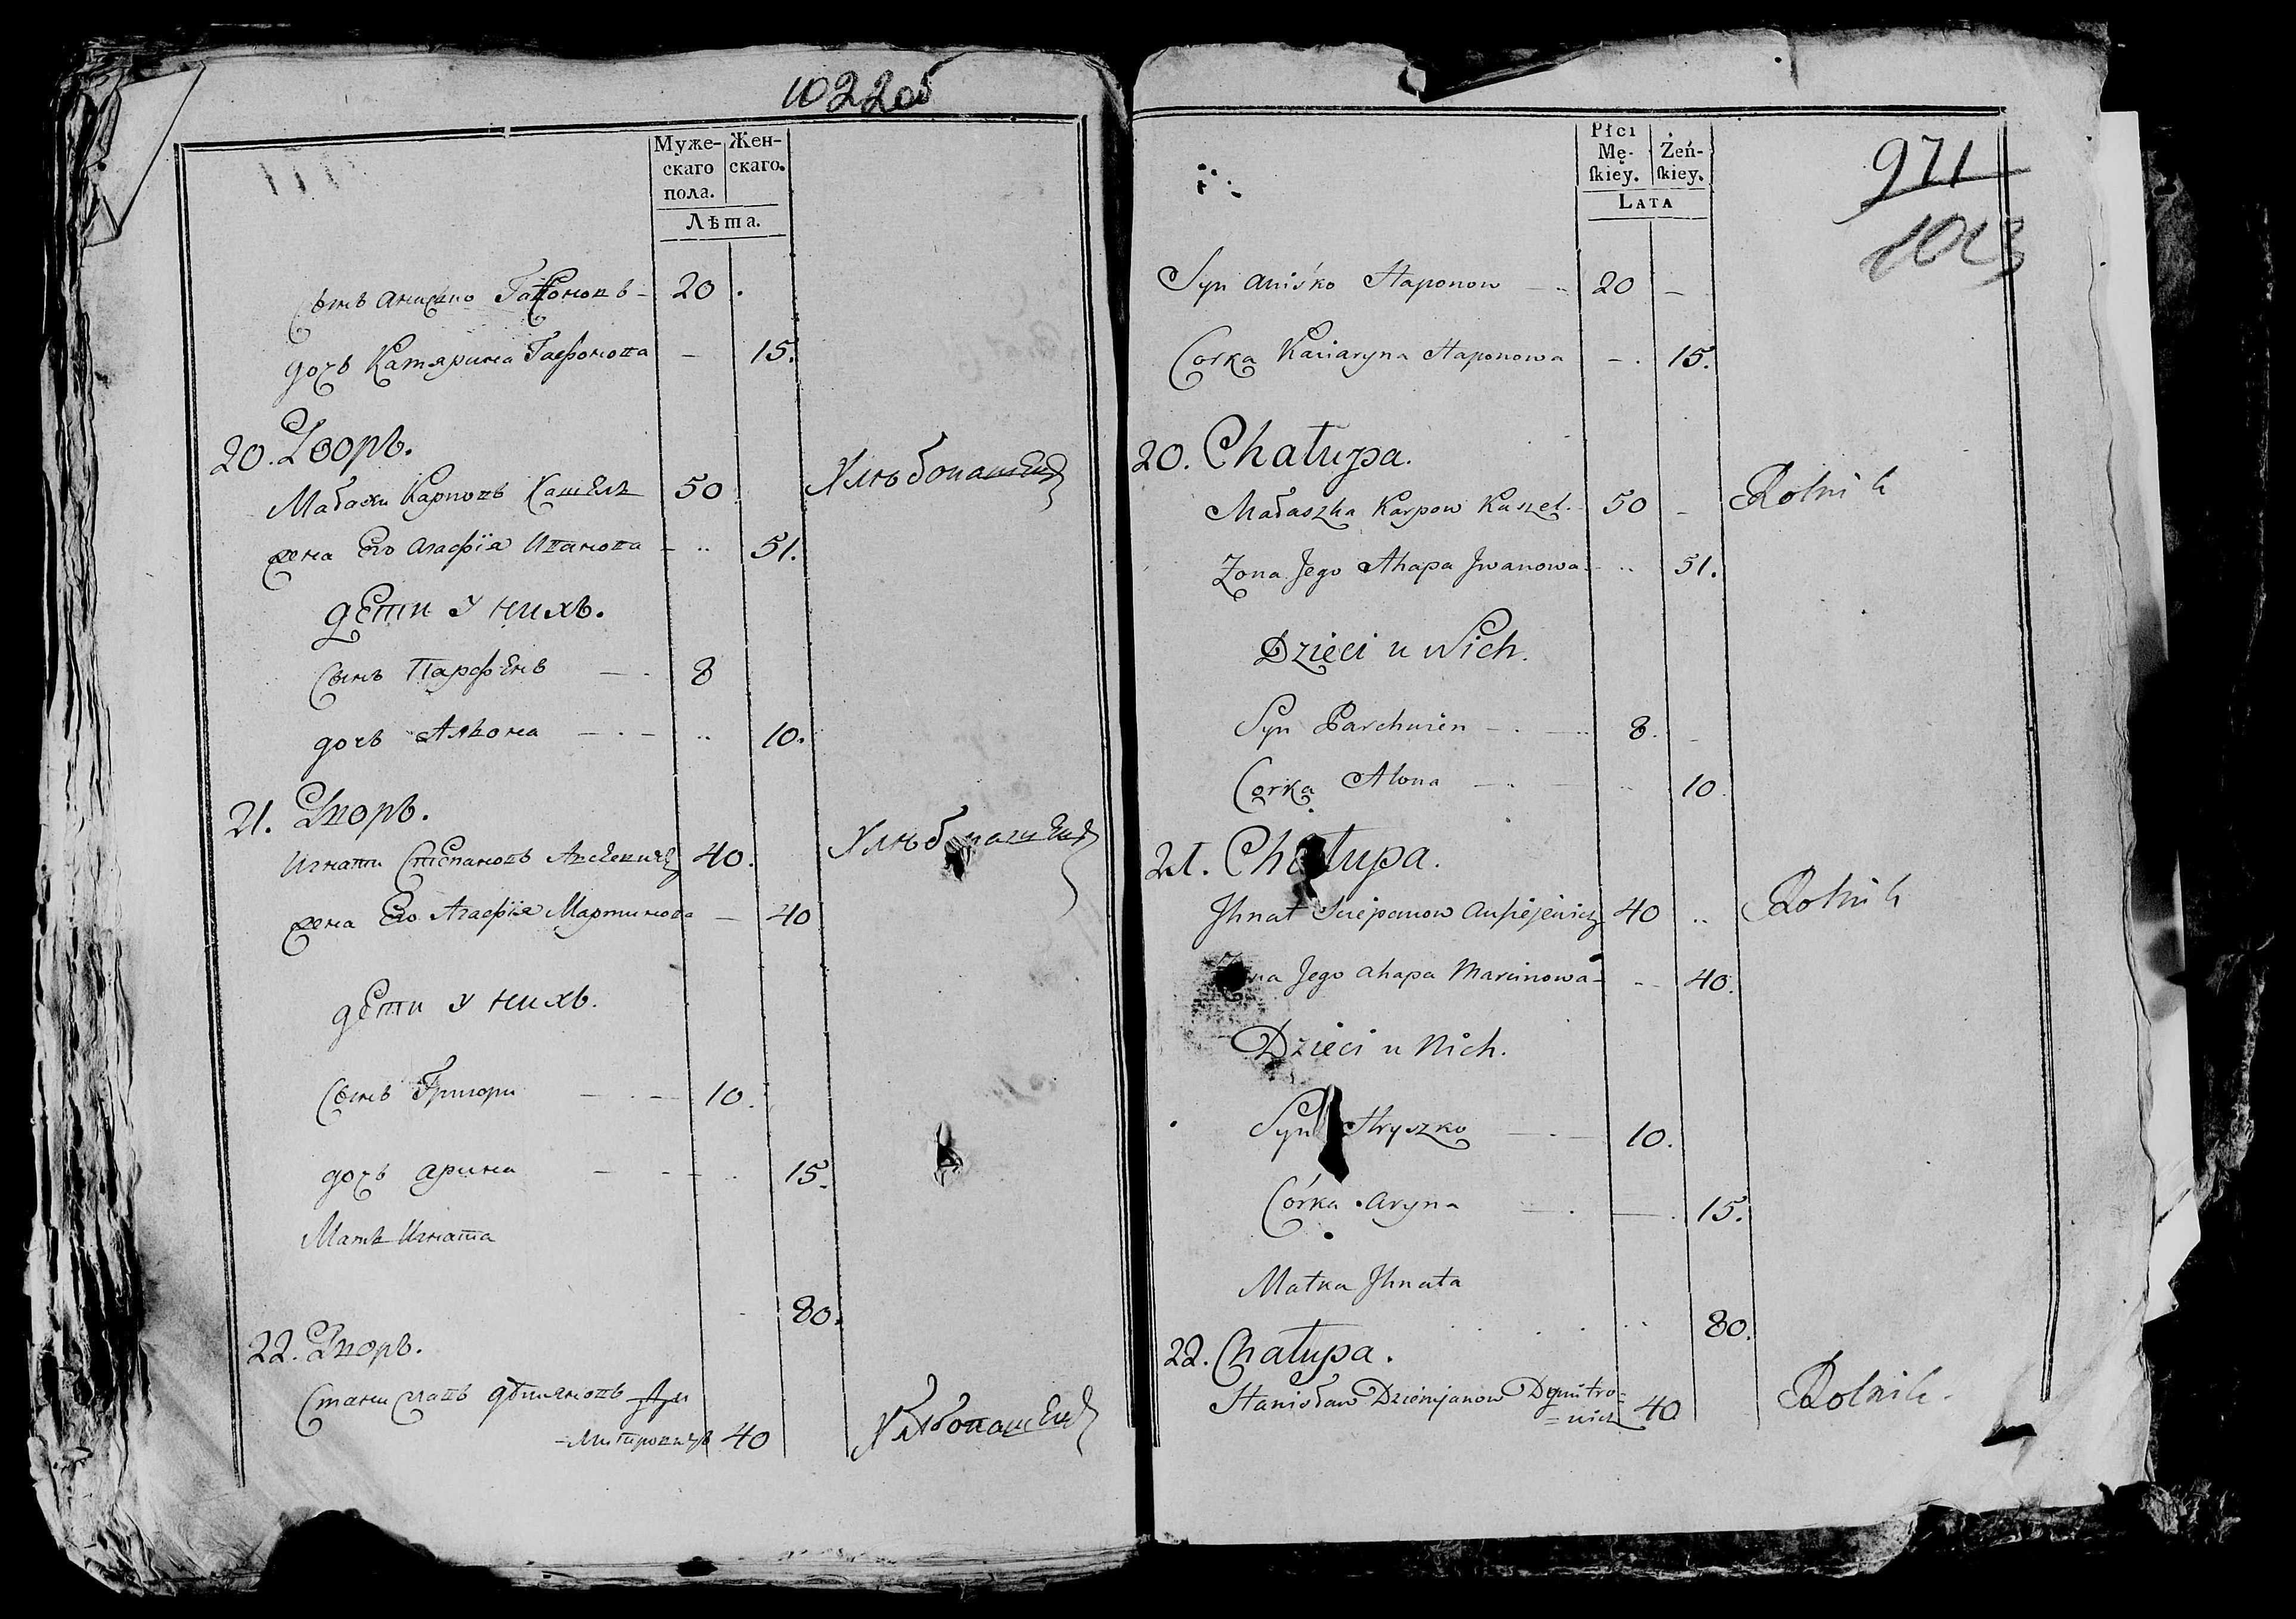 1022об
Муже-
скаго
пола.
Жен-
скаго.
Лѣта.
Сынъ Анисько Гапоновъ - 20 .
дочь Катярина Гафонова - 15.
20. Дворъ.
Карповъ Кашель 50 Хлѣбопашецъ
жена Его Агафія Иванова - .. 51.
дети у нихъ.
Сынъ Парфенъ - . 8
дочь Алѣона - . - .. 10.
21. Дворъ.
Игнати Степановъ 40. Хлѣбопашецъ
жена Его Агафія Мартинова - 40
дети у нихъ.
Сынъ Григори - . - 10.
дочь Арина - - - .. 15.
Мать Игната
80.
22. Дворъ.
Станиславъ Дѣмяновъ Ди
-митровичъ 40 Хлѣбопашецъ
971
1023
Płci
Mę-
ſkiey.
Żeń-
ſkiey.
LATA
Syn Aniśko Haponow - .. 20 -
Corka Kaciaryna Haponowa - . 15.
20. Chałupa.
Karpow Kaszel. 50 - Rolnik
Zona Jego Ahapa Jwanowa - .. 51.
Dzieci u Nich.
Syn Parchwien - . - .. 8. -
Corka Alona - . - .. 10
21. Chałupa.
Jhnat Sciepanow 40 .. Rolnik
Zona Jego Ahapa Marcinowa - -- 40.
Dzieci u Nich.
Syn Hryszko - . - 10.
Córka Aryna - . - . 15.
Matka Jhnata
. . . . .. 80.
22. Chałupa.
Stanisław Dziemjanow Dymitro=
=wicz 40 Rolnik.